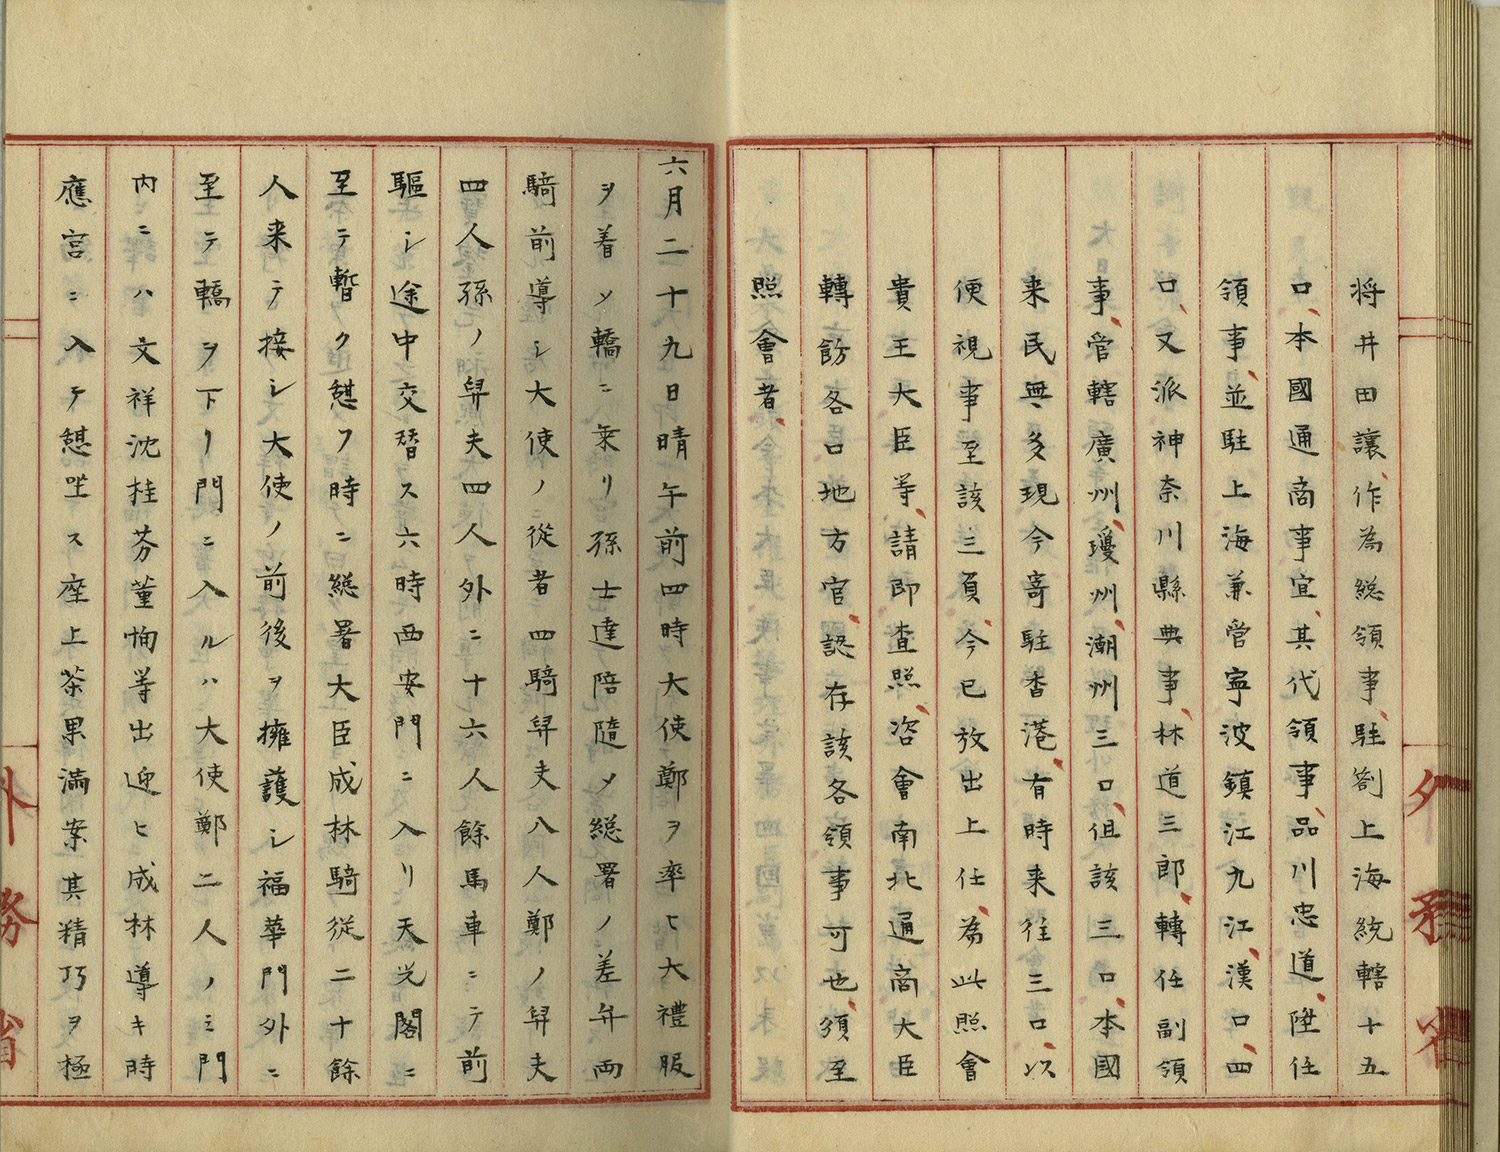 将井田讓作為総領事駐劄上海統轄十五
口本國通商事宜其代領事品川忠道陞任
領事並駐上海兼管寧波鎮江九江漢口四
口又派神奈川縣典事林道三郎轉任副領
事管轄廣州瓊州潮州三口但該三口本國
来民無多現今寄駐香港有時来徃三口以
便視事至該三員今已放出上任為此照會
貴王大臣等請即查照咨會南北通商大臣
轉飭各口地方官認存該各領事可也須至
照會者
六月二十九日晴午前四時大使鄭ヲ率ヒ大禮服
ヲ着メ轎ニ乗リ孫士達陪随メ総署ノ差弁両
騎前導シ大使ノ従者四騎舁夫八人鄭ノ舁夫
四人孫ノ舁夫四人外ニ十六人餘馬車ニテ前
駆シ途中交替ス六時西安門ニ入リ天光閣ニ
至テ暫ク憇フ時ニ総署大臣成林騎従二十餘
人来テ接シ大使ノ前後ヲ擁護シ福華門外ニ
至テ轎ヲ下リ門ニ入ル八大使鄭二人ノミ門
内ニハ文祥沈桂芬董恂等出迎ヒ成林導キ時
應宮ニ入テ憇坐ス座上茶果満案其精巧ヲ極
外務省
外務省